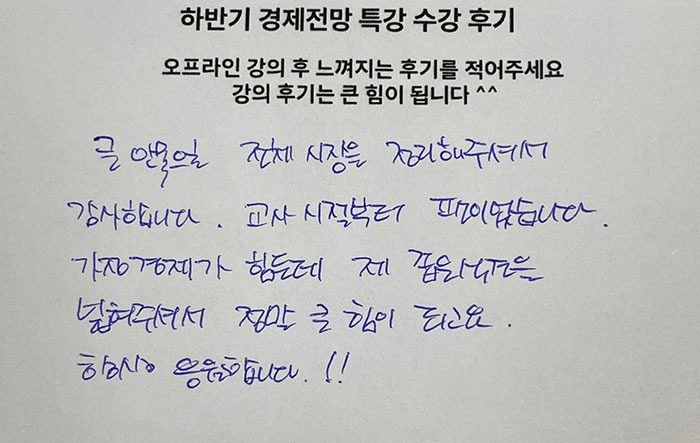 하반기 경제전망 특강 수강 후기
오프라인 강의 후 느껴지는 후기를 적어주세요
강의 후기는 큰 힘이 됩니다 ^^
큰 안목으로 전체 시장을 정리해주셔서
감사합니다. 교사 시절부터 팬이었습니다.
가정경제가 힘든데 제 좁은 식견을
넓혀주셔서 정말 큰 힘이 되고요.
항상 응원합니다.!!